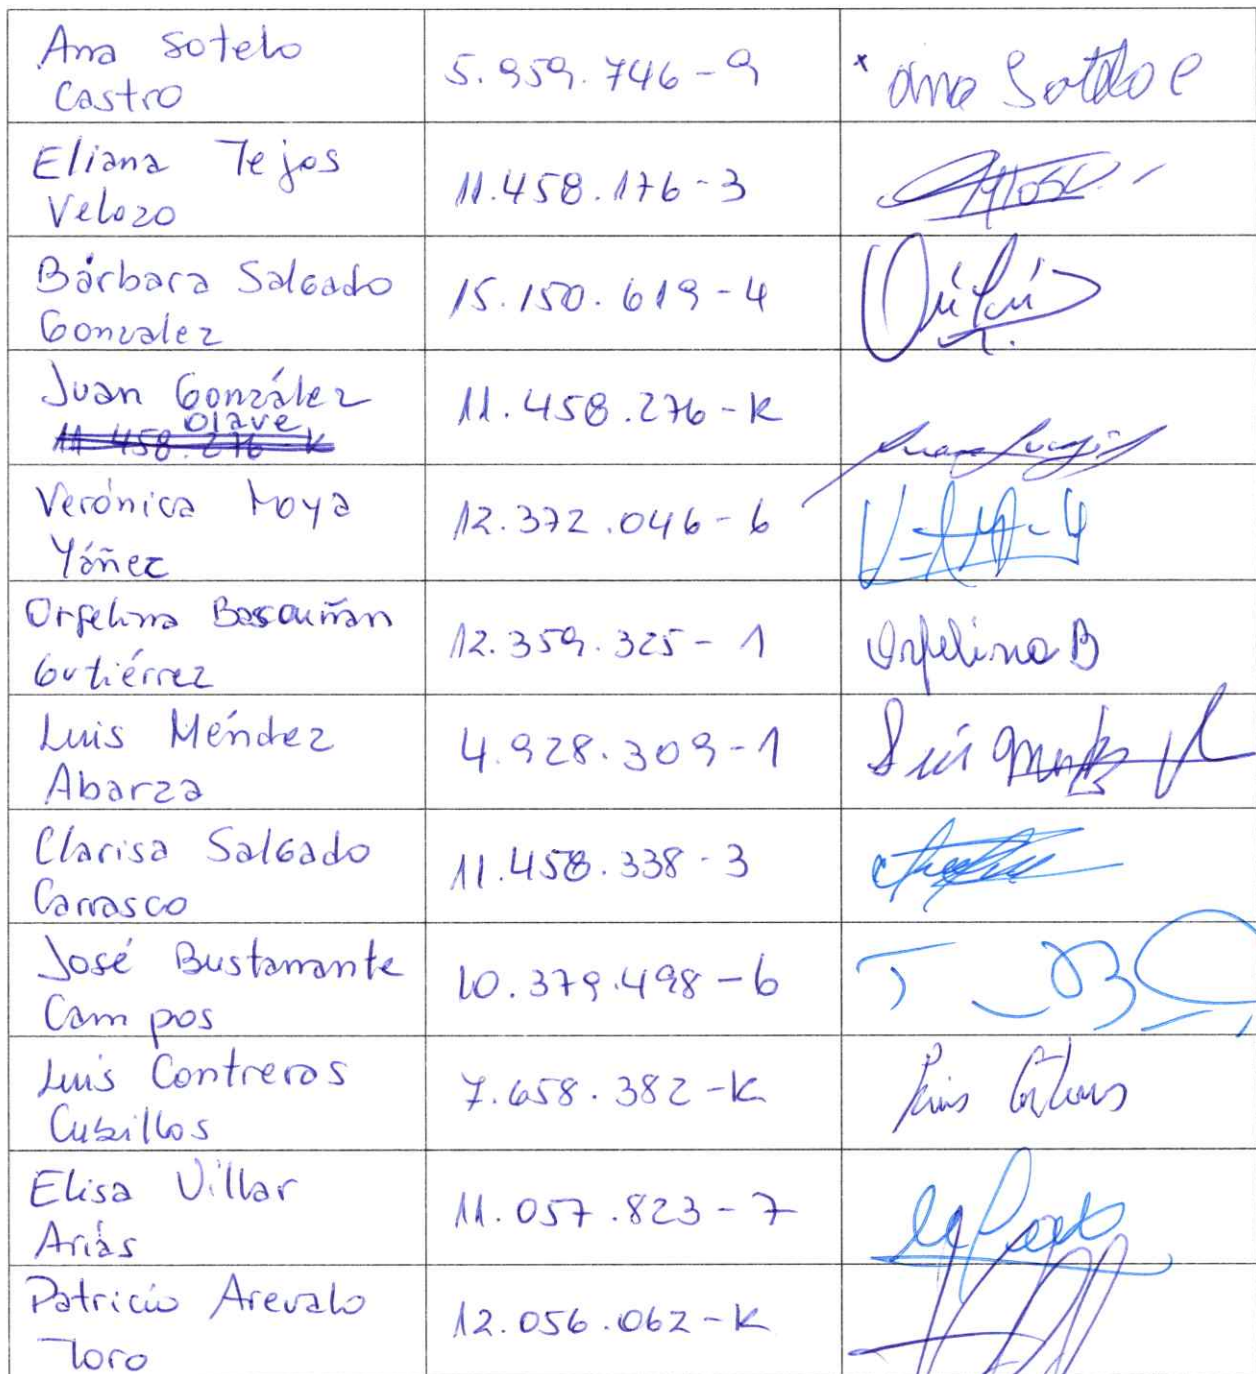 Ana Sotelo
Castro
5.959.746-9
x Ana Sotelo C
Eliana Tejos
Velozo
11.458.176-3
Bárbara Salgado
Gonzalez
15.150.619-4
Juan González
Olave
11.458.276-K
11.458.276-K
Verónica Moya
Yáñez
12.372.046-6
V-M-Y
Orfelina Bascuñan
Gutiérrez
12.359.325-1
Orfelina B
Luis Méndez
Abarza
4.928.309-1
Luis
Clarisa Salgado
Carrasco
11.458.338-3
José Bustamante
Campos
10.379.498-6
Luis Contreras
Cubillos
7.658.382-K
Luis
Elisa Villar
Arias
11.057.823-7
Patricio Arevalo
Toro
12.056.062-K